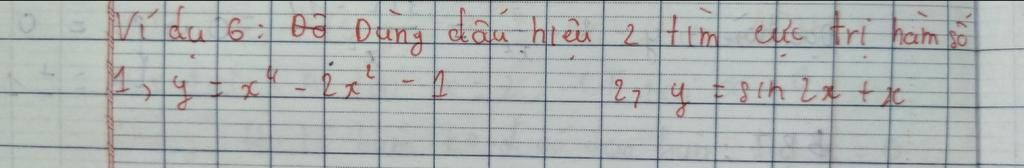 Ví dụ 6: Dùng dấu hiệu 2 tìm cực trị hàm số
1, y = x⁴ - 2x² - 1 2, y = sin 2x + x